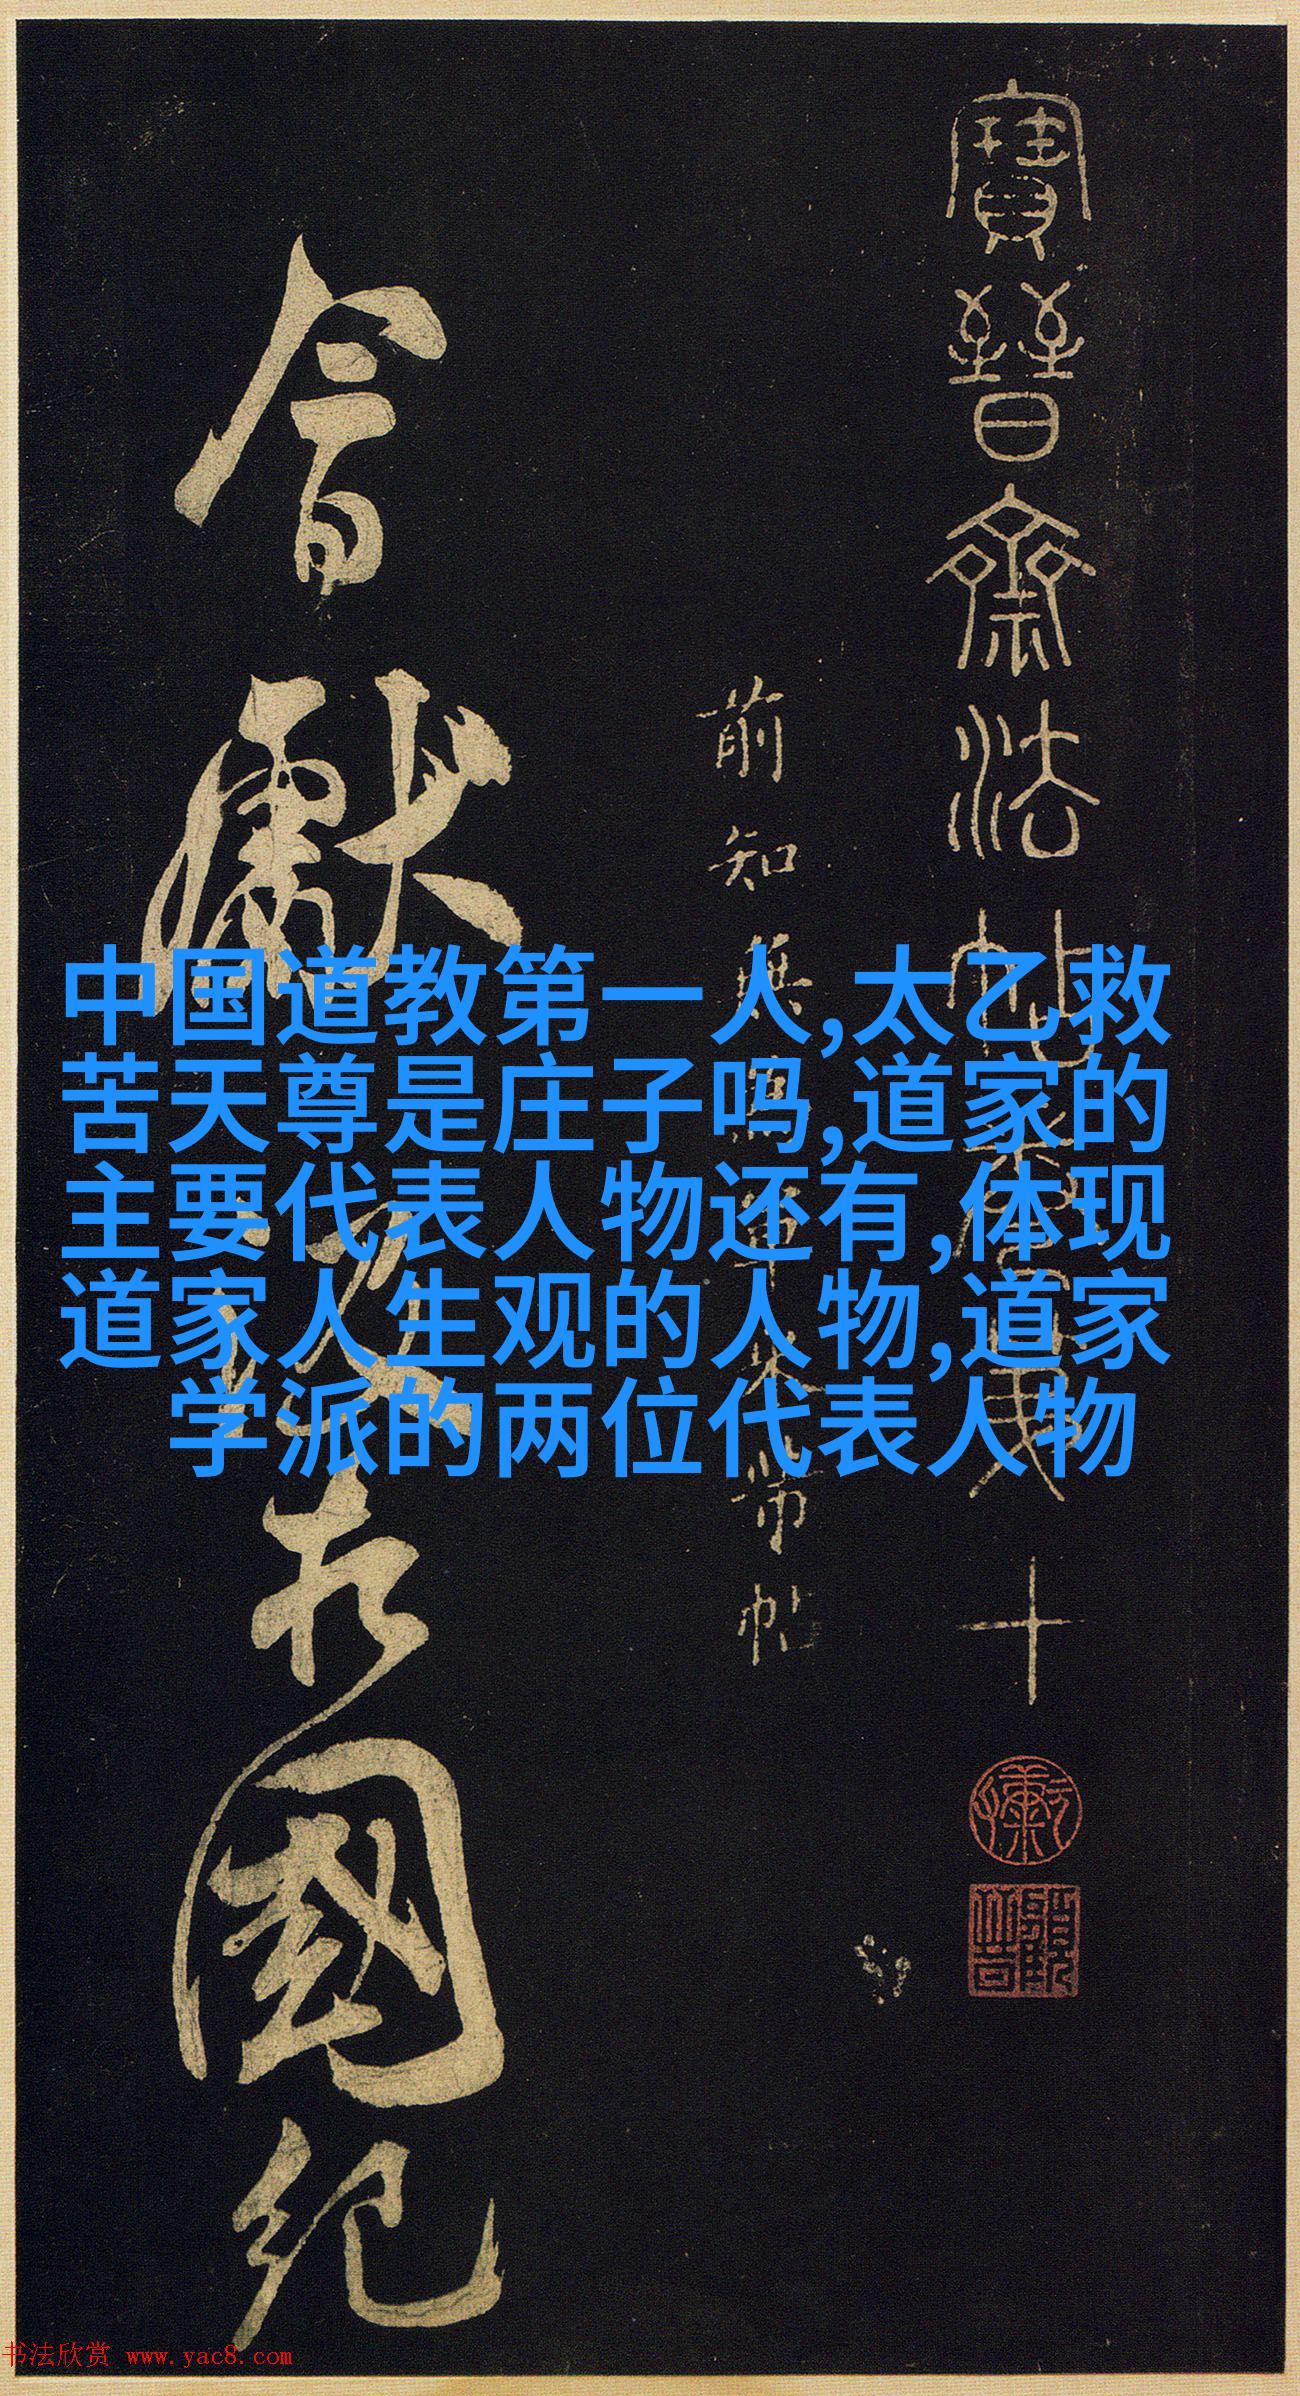 寶晉齋法帖卷第十
前知無為軍
帖
今獻
國紀
中国道教第一人,太乙救
苦天尊是庄子吗,道家的
主要代表人物还有,体现
道家人生观的人物,道家
学派的两位代表人物
书法欣赏 www.yac8.com